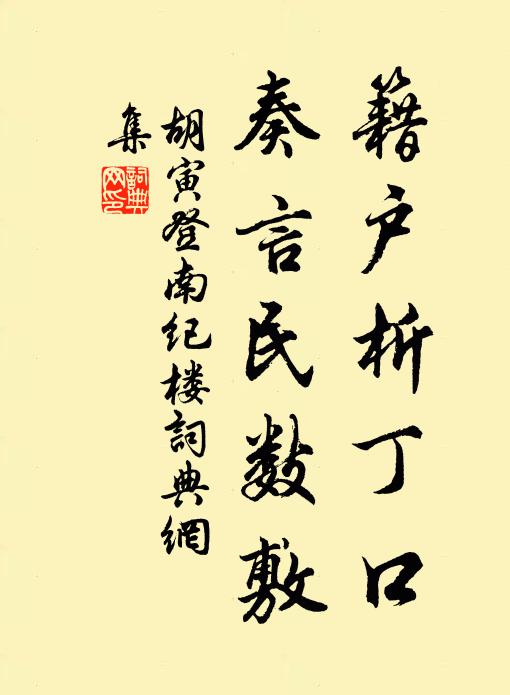 籍户析丁口
奏言民数敷
胡寅登南纪楼詞典網
集
詞典網印